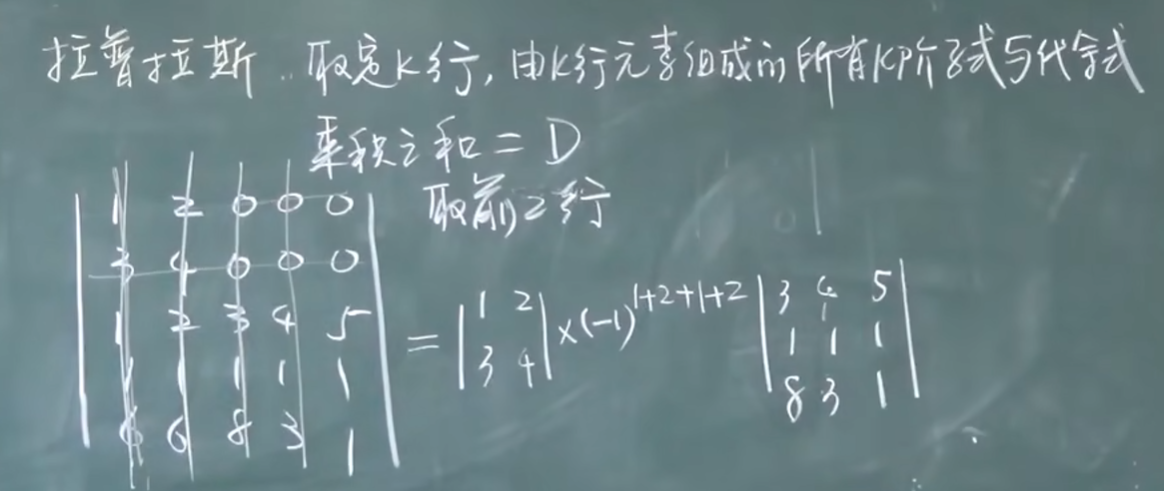 拉普拉斯.. 取定K行,由K行元素组成的所有K阶子式与代余式
乘积之和=D
取前2行
1 2 0 0 0
3 4 0 0 0
1 2 3 4 5
1 1 1 1 1
6 6 8 3 1
=
1 2
3 4
×(-1)^{1+2+1+2}
3 4 5
1 1 1
8 3 1